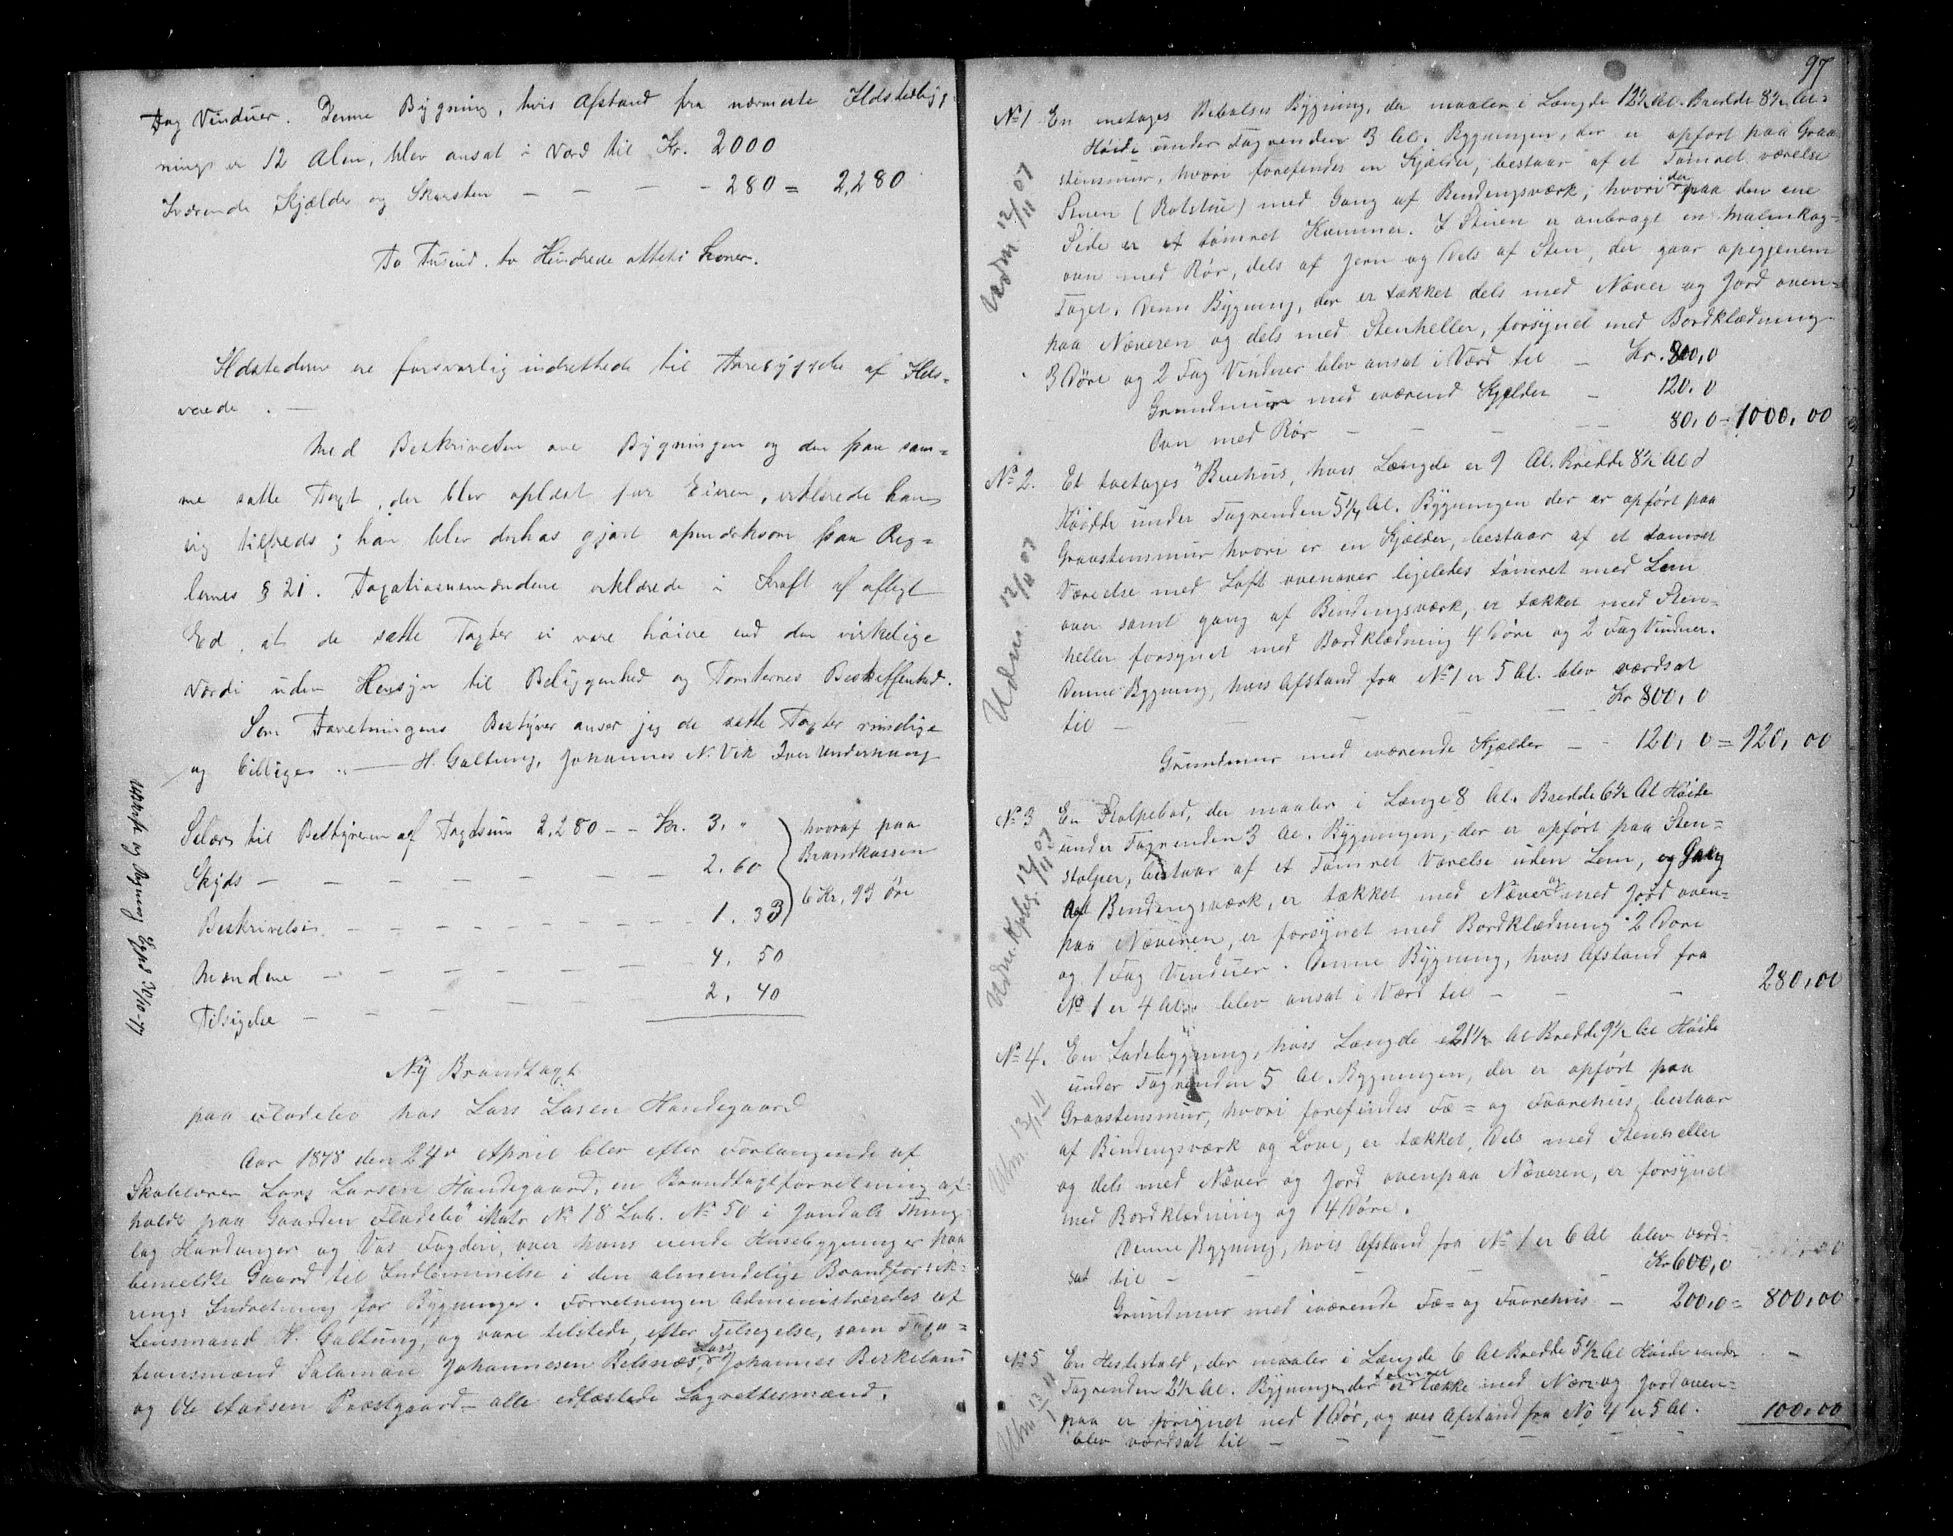 Fag Vinduer. Denne Bygning, hvis Afstand fra nærmeste Ildstedbyg-
ning er 12 Alen, blev ansat i Værd til Kr. 2000
Iværende Kjælder og Skorsten — — — - 280 = 2,280
To Tusind, to Hundrede otteti Kroner.
Ildstederne ere forsvarlig indrettede til Forebyggelse af Ilds-
vaade. —
Med Beskrivelsen over Bygningen og den paa sam-
me satte Taxt, der blev oplæst for Eieren, erklærede han
sig tilfreds; han blev derhos gjort opmærksom paa Reg-
lernes § 21. Taxationsmændene erklærede i Kraft af aflagt
Ed, at de satte Taxter ei vare høiere end den virkelige
Værdi uden Hensyn til Beliggenhed og Tomternes Beskaffenhed.
Som Forretningens Bestyrer anser jeg de satte Taxter rimelige
og billige. — H. Galtung, Johannes N. Vik Iver Underhaug
Salær til Bestyreren af Taxtsum 2,280 — Kr. 3, "
hvoraf paa
Skyds — — — — — — 2. 60
Brandkassen
6 Kr, 93 Øre
Beskrivelsen — — — — — — 1. 33
Mændene — — — — — — 4. 50
Tilsigelse — — — — — 2, 40
Ny Brandtaxt
paa Fladebø hos Lars Larsen Handegaard
Aar 1878 den 24de April blev efter Forlangende af
Skolelærer Lars Larsen Handegaard, en Brandtaxtforretning af-
holdt paa Gaarden Fladebø Matr. No 18 Løb. No 50 i Jondals Thing-
lag Hardanger og Vos Fogderi, over hans eiende Husebygninger paa
bemeldte Gaard til Indlemmelse i den almindelige Brandforsik-
rings Indretning for Bygninger. Forretningen administreredes af
Lensmand H. Galtung, og vare tilstede, efter Tilsigelse, som Taxa-
tionsmænd Salamon Johannesen Belsnæs, Lars Johannes Birkeland
og Ole Aadsen Præstgaard — alle edfæstede Lagrettesmænd.
97
No 1 En enetages Bebolses Bygning, der maaler i Længde 12½ Al. Bredde 8½ Al.
Høide under Tagrenden 3 Al. Bygningen, der er opført paa Graa-
stensmur, hvori forefindes en Kjælder, bestaar af et Tømret værelse
Stuen (Rolstue) med Gang af Bindingsværk, hvori der paa den ene
Side er et tømret Kammer. I Stuen er anbragt en Malmkog-
ovn med Rør, dels af Jern og dels af Sten, der gaar opigjennem
Taget. Denne Bygning, der er tækket dels med Næver og Jord oven-
paa Næveren og dels med Stenheller, forsynet med Bordklædning
3 Døre og 2 Fag Vinduer blev ansat i Værd til — Kr. 800,0
Grundmur med iværend Kjælder — 120,0
Ovn med Rør — — — — 80,0 = 1000,00
Udm 12/11 07
No 2. Et toetages Buehus, hvis Længde er 9 Al. Bredde 8½ Al
Høide under Tagrenden 5¼ Al. Bygningen der er opført paa
Graastensmur hvori er en Kjælder, bestaar af et tømret
Værelse med Loft ovenover ligeledes tømret med Lem
over samt gang af Bindingsværk, er tækket med Sten-
heller forsynet med Bordklædning 4 Døre og 2 Fag Vinduer.
Denne Bygning, hvis Afstand fra No 1 er 5 Al. blev værdsat
til — — — — Kr 800,0
Grundmur med iværende Kjælder — 120,0 = 920,00
Udm. 12/11 07
No 3 En Stolpebod, der maaler i Længe 8 Al. Bredde 6½ Al Høide
under Tagrenden 3 Al. Bygningen, der er opført paa Sten-
stolper, bestaar af et Tømret Værelse uden Lem, og Gang
af Bindingsværk, er tækket med Næver og med Jord oven-
paa Næveren, er forsynet med Bordklædning 2 Døre
og 1 Fag Vinduer. Denne Bygning, hvis Afstand fra
No 1 er 4 Al. blev ansat i Værd til — — — 280,00
12/11 07
No 4. En Ladebygning, hvis Længde 21½ Al Bredde 9½ Al Høide
under Tagrenden 5 Al. Bygningen, der er opført paa
Graastensmur, hvori forefindes Fæ- og Faarehus, bestaar
af Bindingsværk og Love, er tækket, dels med Stenheller
og dels med Næver og Jord ovenpaa Næveren, er forsynet
med Bordklædning og 4 Døre.
Denne Bygning, hvis Afstand fra No 1 er 6 Al blev værd-
sat til — — — — Kr 600,0
Grundmur med iværende Fæ- og Faarehus — 200,0 = 800,00
Utm. 13/1 11
No 5 En Hestestald, der maaler i Længde 6 Al Bredde 5½ Al Høide under
Tagrenden 2½ Al. Bygningen der er tække med Næver og Jord oven-
paa er forsynet med 1 Dør, og hvis Afstand fra No 4 er 5 Al.
blev værdsat til — — — — 100,00
Utm 13/1 11